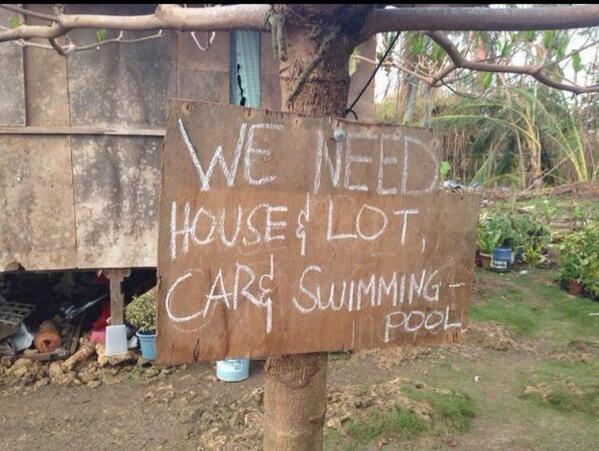 WE NEED
HOUSE & LOT,
CAR & SWIMMING-
POOL